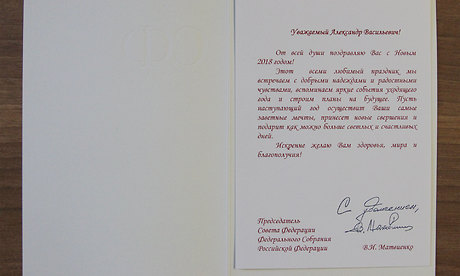 Уважаемый Александр Васильевич!
От всей души поздравляю Вас с Новым
2018 годом!
Этот всеми любимый праздник мы
встречаем с добрыми надеждами и радостными
чувствами, вспоминаем яркие события уходящего
года и строим планы на будущее. Пусть
наступающий год осуществит Ваши самые
заветные мечты, принесет новые свершения и
подарит как можно больше светлых и счастливых
дней.
Искренне желаю Вам здоровья, мира и
благополучия!
С уважением,
Председатель
Совета Федерации
Федерального Собрания
Российской Федерации В.И. Матвиенко